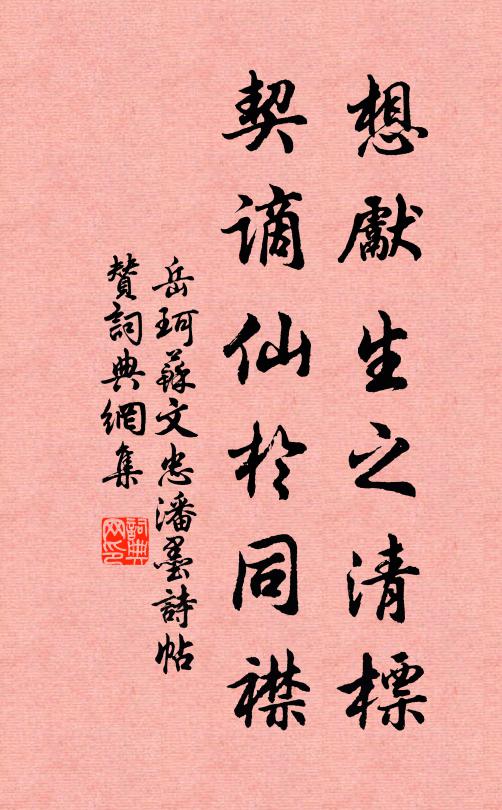 想獻生之清標
契謫仙於同襟
岳珂蘇文忠潘墨詩帖
贊詞典網集
詞典
网印